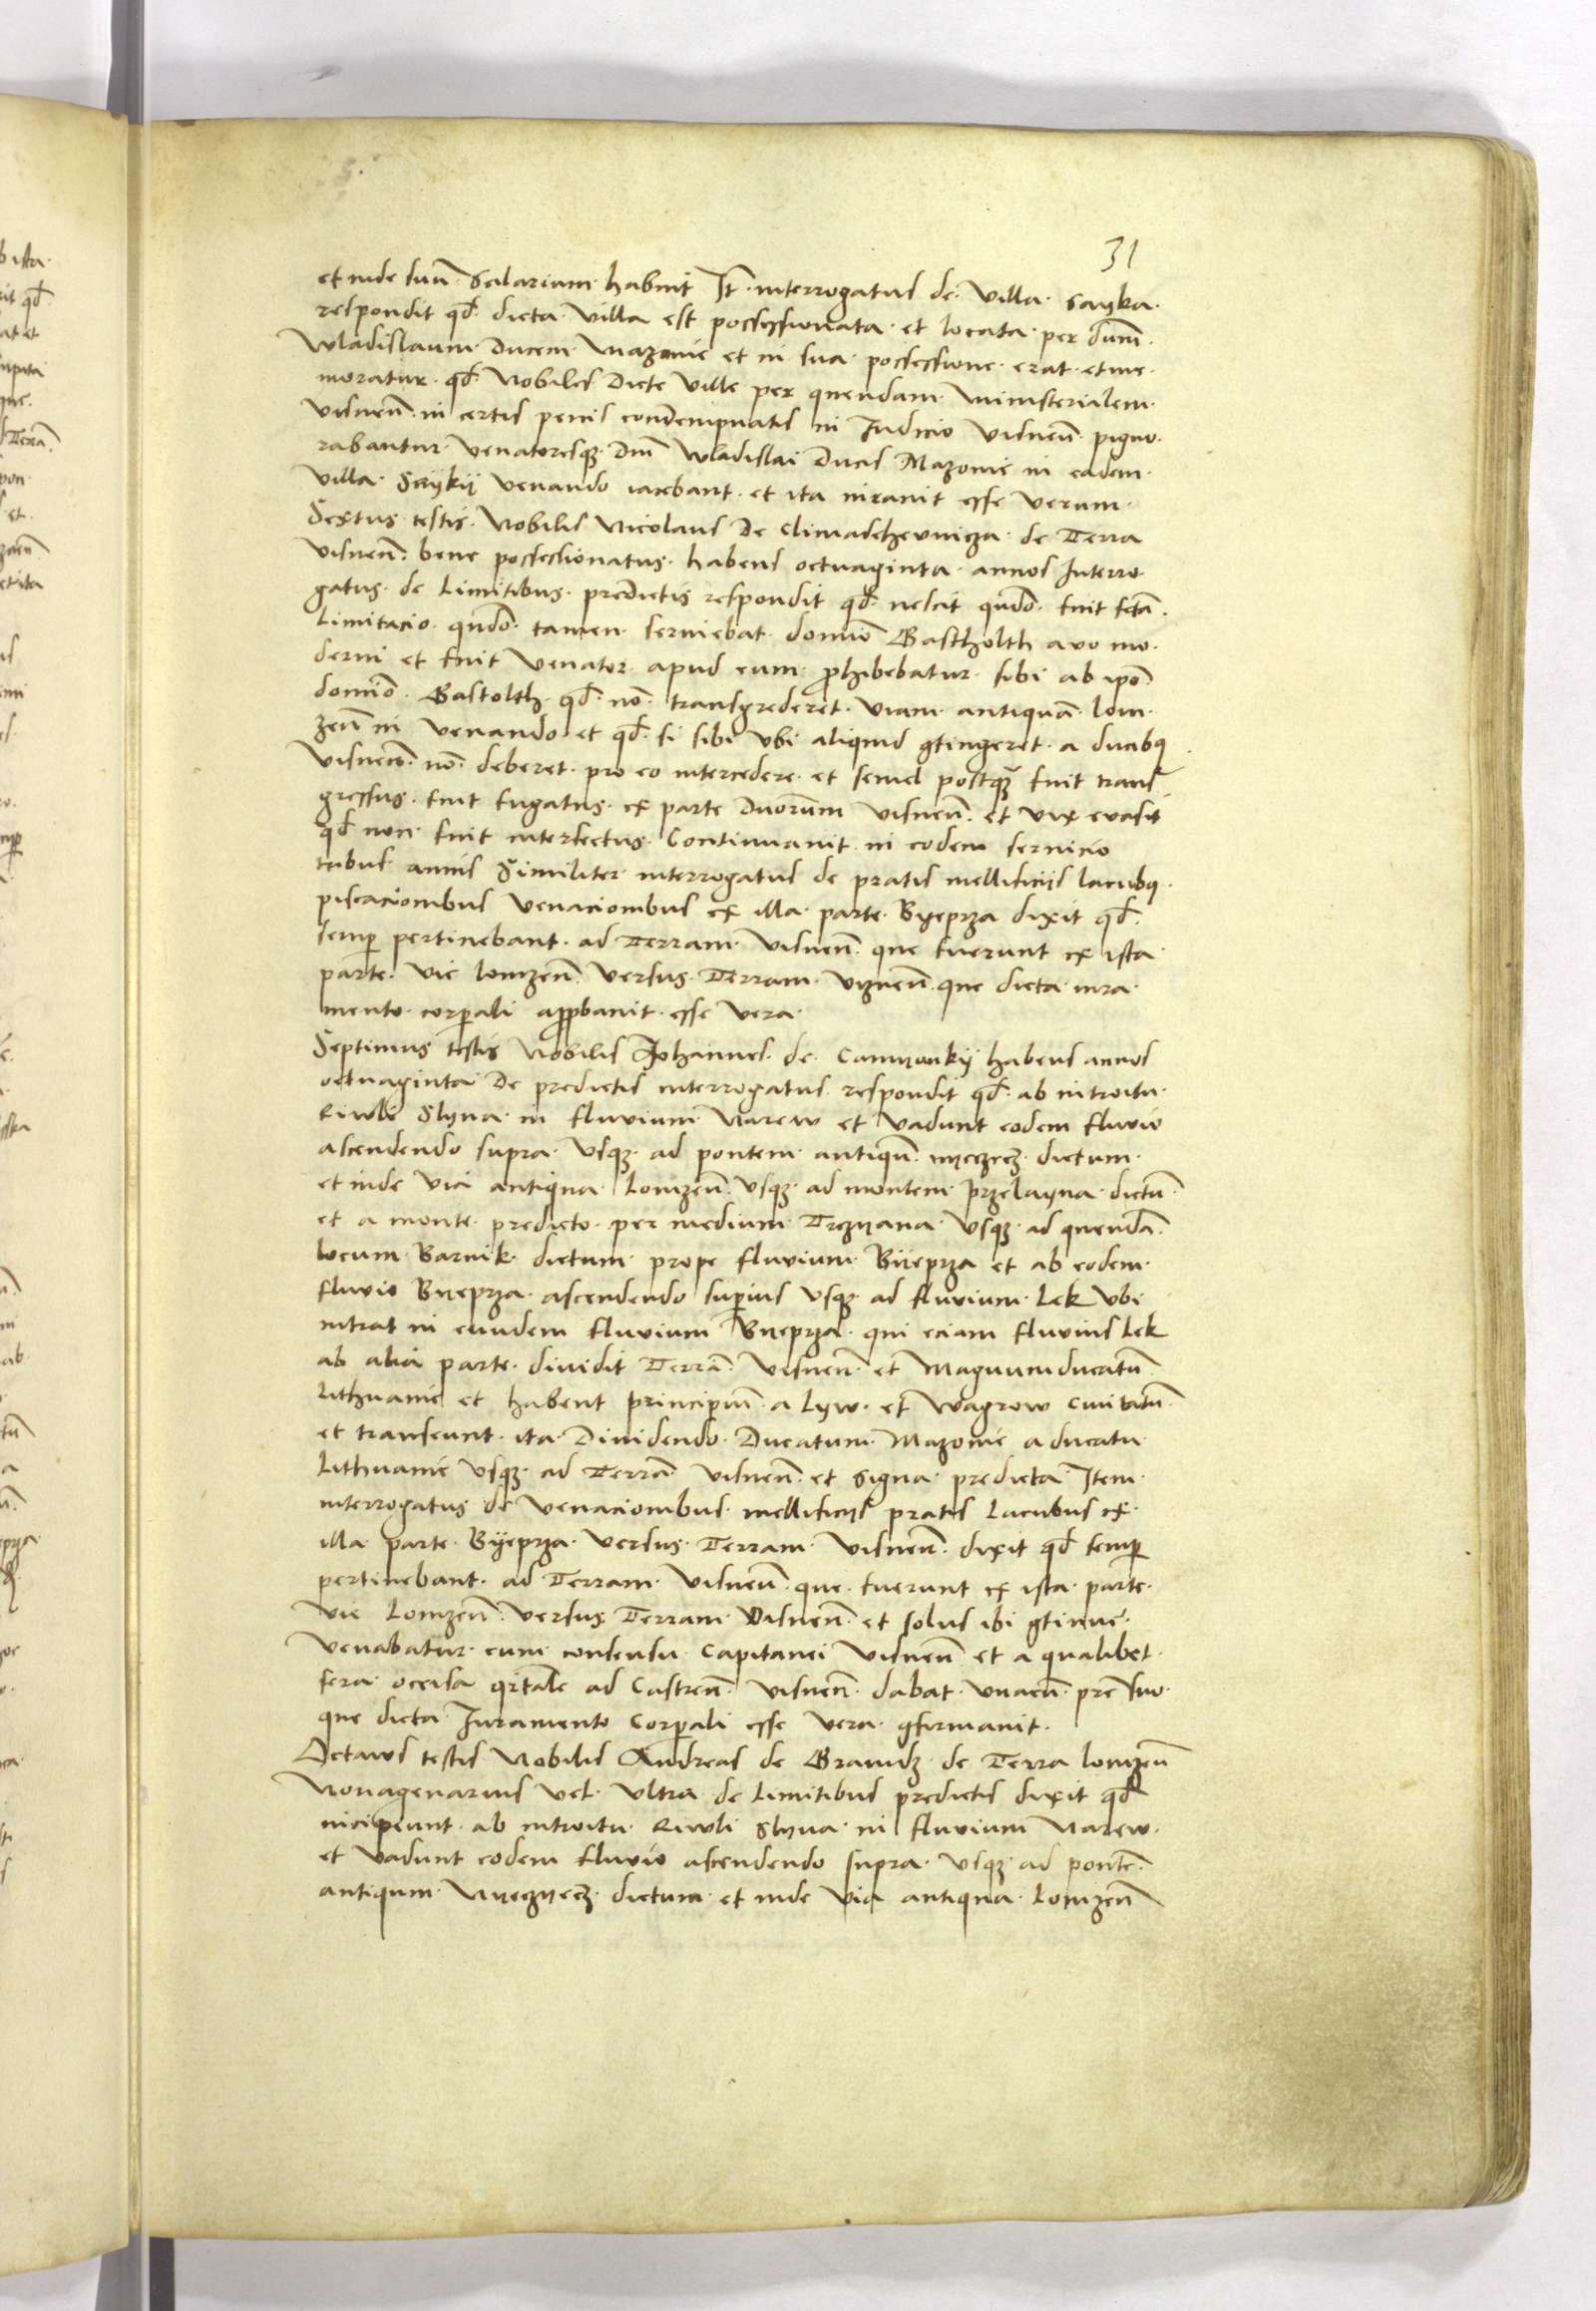 31
et inde suū Salarium habuit It̄ interrogatus de Villa Sayka
respondit qd̄ dicta Villa est possessionata et locata per dum̄
Wladislaum Ducem Mazovie et in sua possessione erat et me
moratur qd̄ Nobiles Dicte Ville per quendam Ministerialem
Visneñ in certis penis condempnatis in Iudicio Visneñ pigno
rabantur Venatoresqz Dm̄ Wladislai Ducis Mazovie in eadem
Villa Saykij venando iacebant et ita iuravit esse verum
Sextus testis Nobilis Nicolaus De de Terra
Visneñ bene possessionatus habens octuaginta annos Interro
gatus de Limitibus predictis respondit qd̄ nescit qn̄do fuit fcta
Limitacio qn̄do tamen serviebat domio Gastholth avo mo
derni et fuit Venator apud eum prohibebatur sibi ab ipō
domio Gastolth qd̄ nō transgrederet viam antiquā Lom
zeñ in venando et qd̄ si sibi ubi aliquid gtingeret a ducbq
Visneñ nō deberet pro eo intercedere et semel postqz fuit trans
gressus fuit fugatus ex parte Duorum Visneñ et vix evasit
qd̄ non fuit interfectus Continuavit in eodem servicio
tribus annis Similiter interrogatus de pratis mellificijs lacubq
piscacionibus Venacionibus ex illa parte Byeprza dixit qd̄
semp pertinebant ad Terram Visneñ que fuerunt ex ista
parte vie lomzeñ versus Terram Vizneñ que dicta iura
mento corpali approbavit esse vera
Septimus testis Nobilis Johannes de habens annos
octuaginta De predictis interrogatus respondit qd̄ ab introitu
Riwli Slyna in fluvium Narew et vadunt eodem fluvio
ascendendo supra Usqz ad pontem antiqū dictum
et inde via antiqua Lomzeñ Usqz ad montem przelayna dictū
et a monte predicto per medium Trzyana Usqz ad quendā
locum Barnik dictum prope fluvium Byeprza et ab eodem
fluvio Byeprza ascendendo supius Usqz ad fluvium Lek Ubi
intrat in eundem fluvium Byeprza qui eciam fluvius Lek
ab alia parte dividit Terrā Visneñ et Magnumducatū
Lithuanie et habent principiū a Lyw et Wagrow Civitatū
et transeunt ita Dividendo Ducatum Mazovie a ducatu
Lithuanie Usqz ad Terrā Visneñ et signa predicta Item
interrogatus de Venacionibus mellificijs pratis Lacubus ex
illa parte Byeprza versus Terram Visneñ dixit qd̄ semp
pertinebant ad Terram Visneñ que fuerunt ex ista parte
vie Lomzeñ versus Terram Visneñ et solus ibi gtinue
venabatur cum consensu Capitanei Visneñ et a qualibet
fera occisa qrtale ad Castreñ Visneñ dabat unacū prē suo
que dicta Iuramento Corpali esse vera gfirmavit
Octavus testis Nobilis Andreas de de Terra lomzeñ
Nonagenarius vel Ultra de Limitibus predictis dixit qd̄
incipiunt ab introitu Riwli Slyna in fluvium Narew
et vadunt eodem fluvio ascendendo supra Usqz ad pontē
antiqum dictum et inde via antiqua Lomzeñ